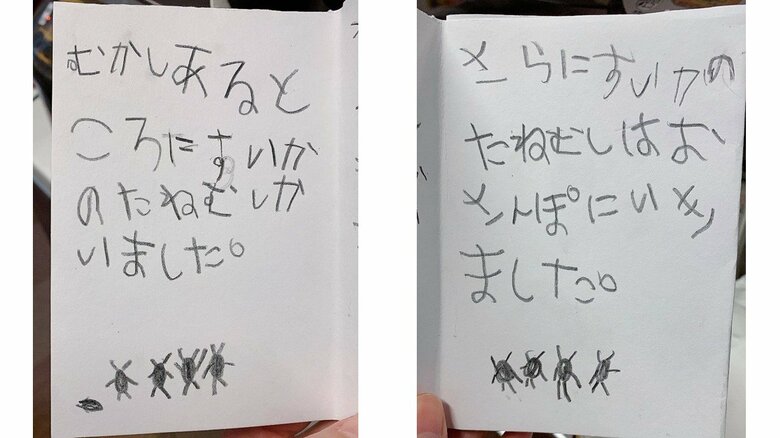 むかしあると
ころにすいか
のたねむしか
いました。
さらにすいかの
たねむしはお
さんぽにいき
ました。